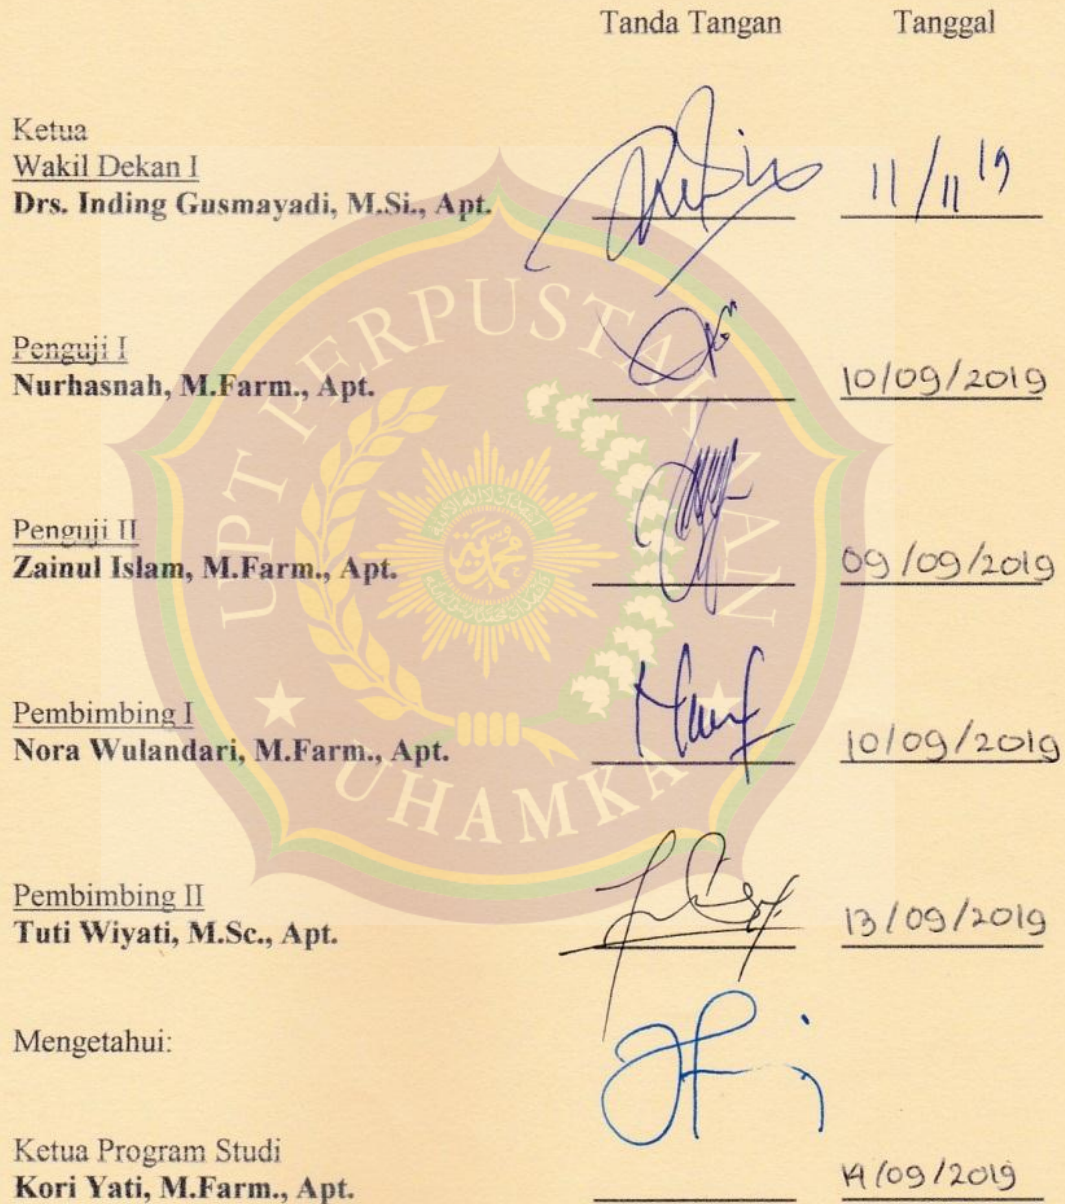 Tanda Tangan Tanggal
Ketua
Wakil Dekan I
Drs. Inding Gusmayadi, M.Si., Apt. 11/11 19
Penguji I
Nurhasnah, M.Farm., Apt. 10/09/2019
Penguji II
Zainul Islam, M.Farm., Apt. 09/09/2019
Pembimbing I
Nora Wulandari, M.Farm., Apt. 10/09/2019
Pembimbing II
Tuti Wiyati, M.Sc., Apt. 13/09/2019
Mengetahui:
Ketua Program Studi
Kori Yati, M.Farm., Apt. /09/2019
UPT PERPUSTAKAAN
UHAMKA